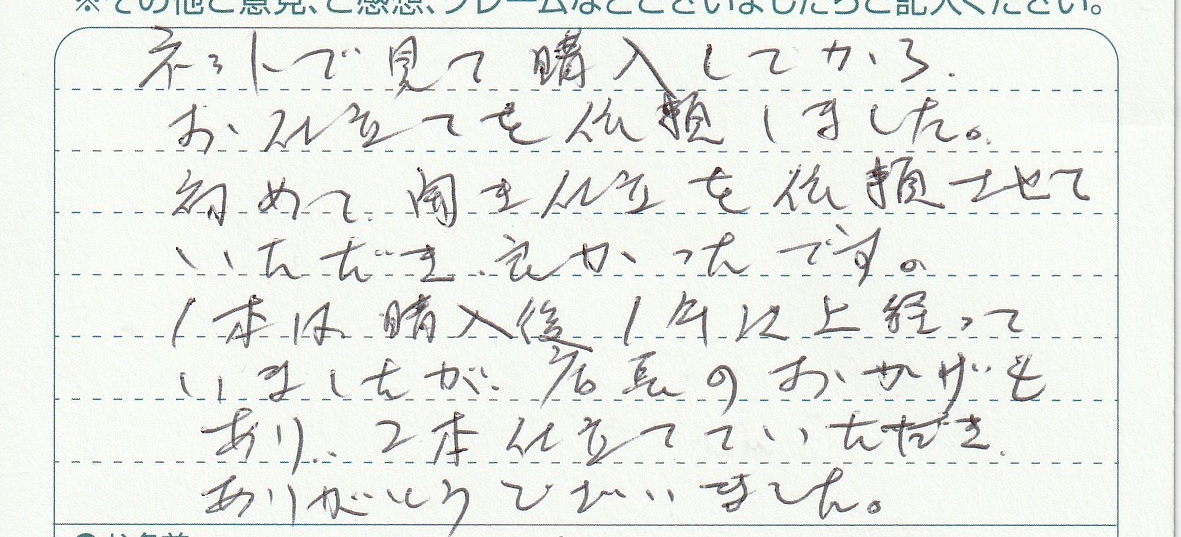 ※その他ご意見、ご感想、クレームなどございましたらご記入ください。
ネットで見て購入してから、
お仕立てを依頼しました。
初めて、開き仕立を依頼させて
いただき、良かったです。
1本は購入後1年以上経って
いましたが、店長のおかげも
あり、2本仕立てていただき、
ありがとうございました。